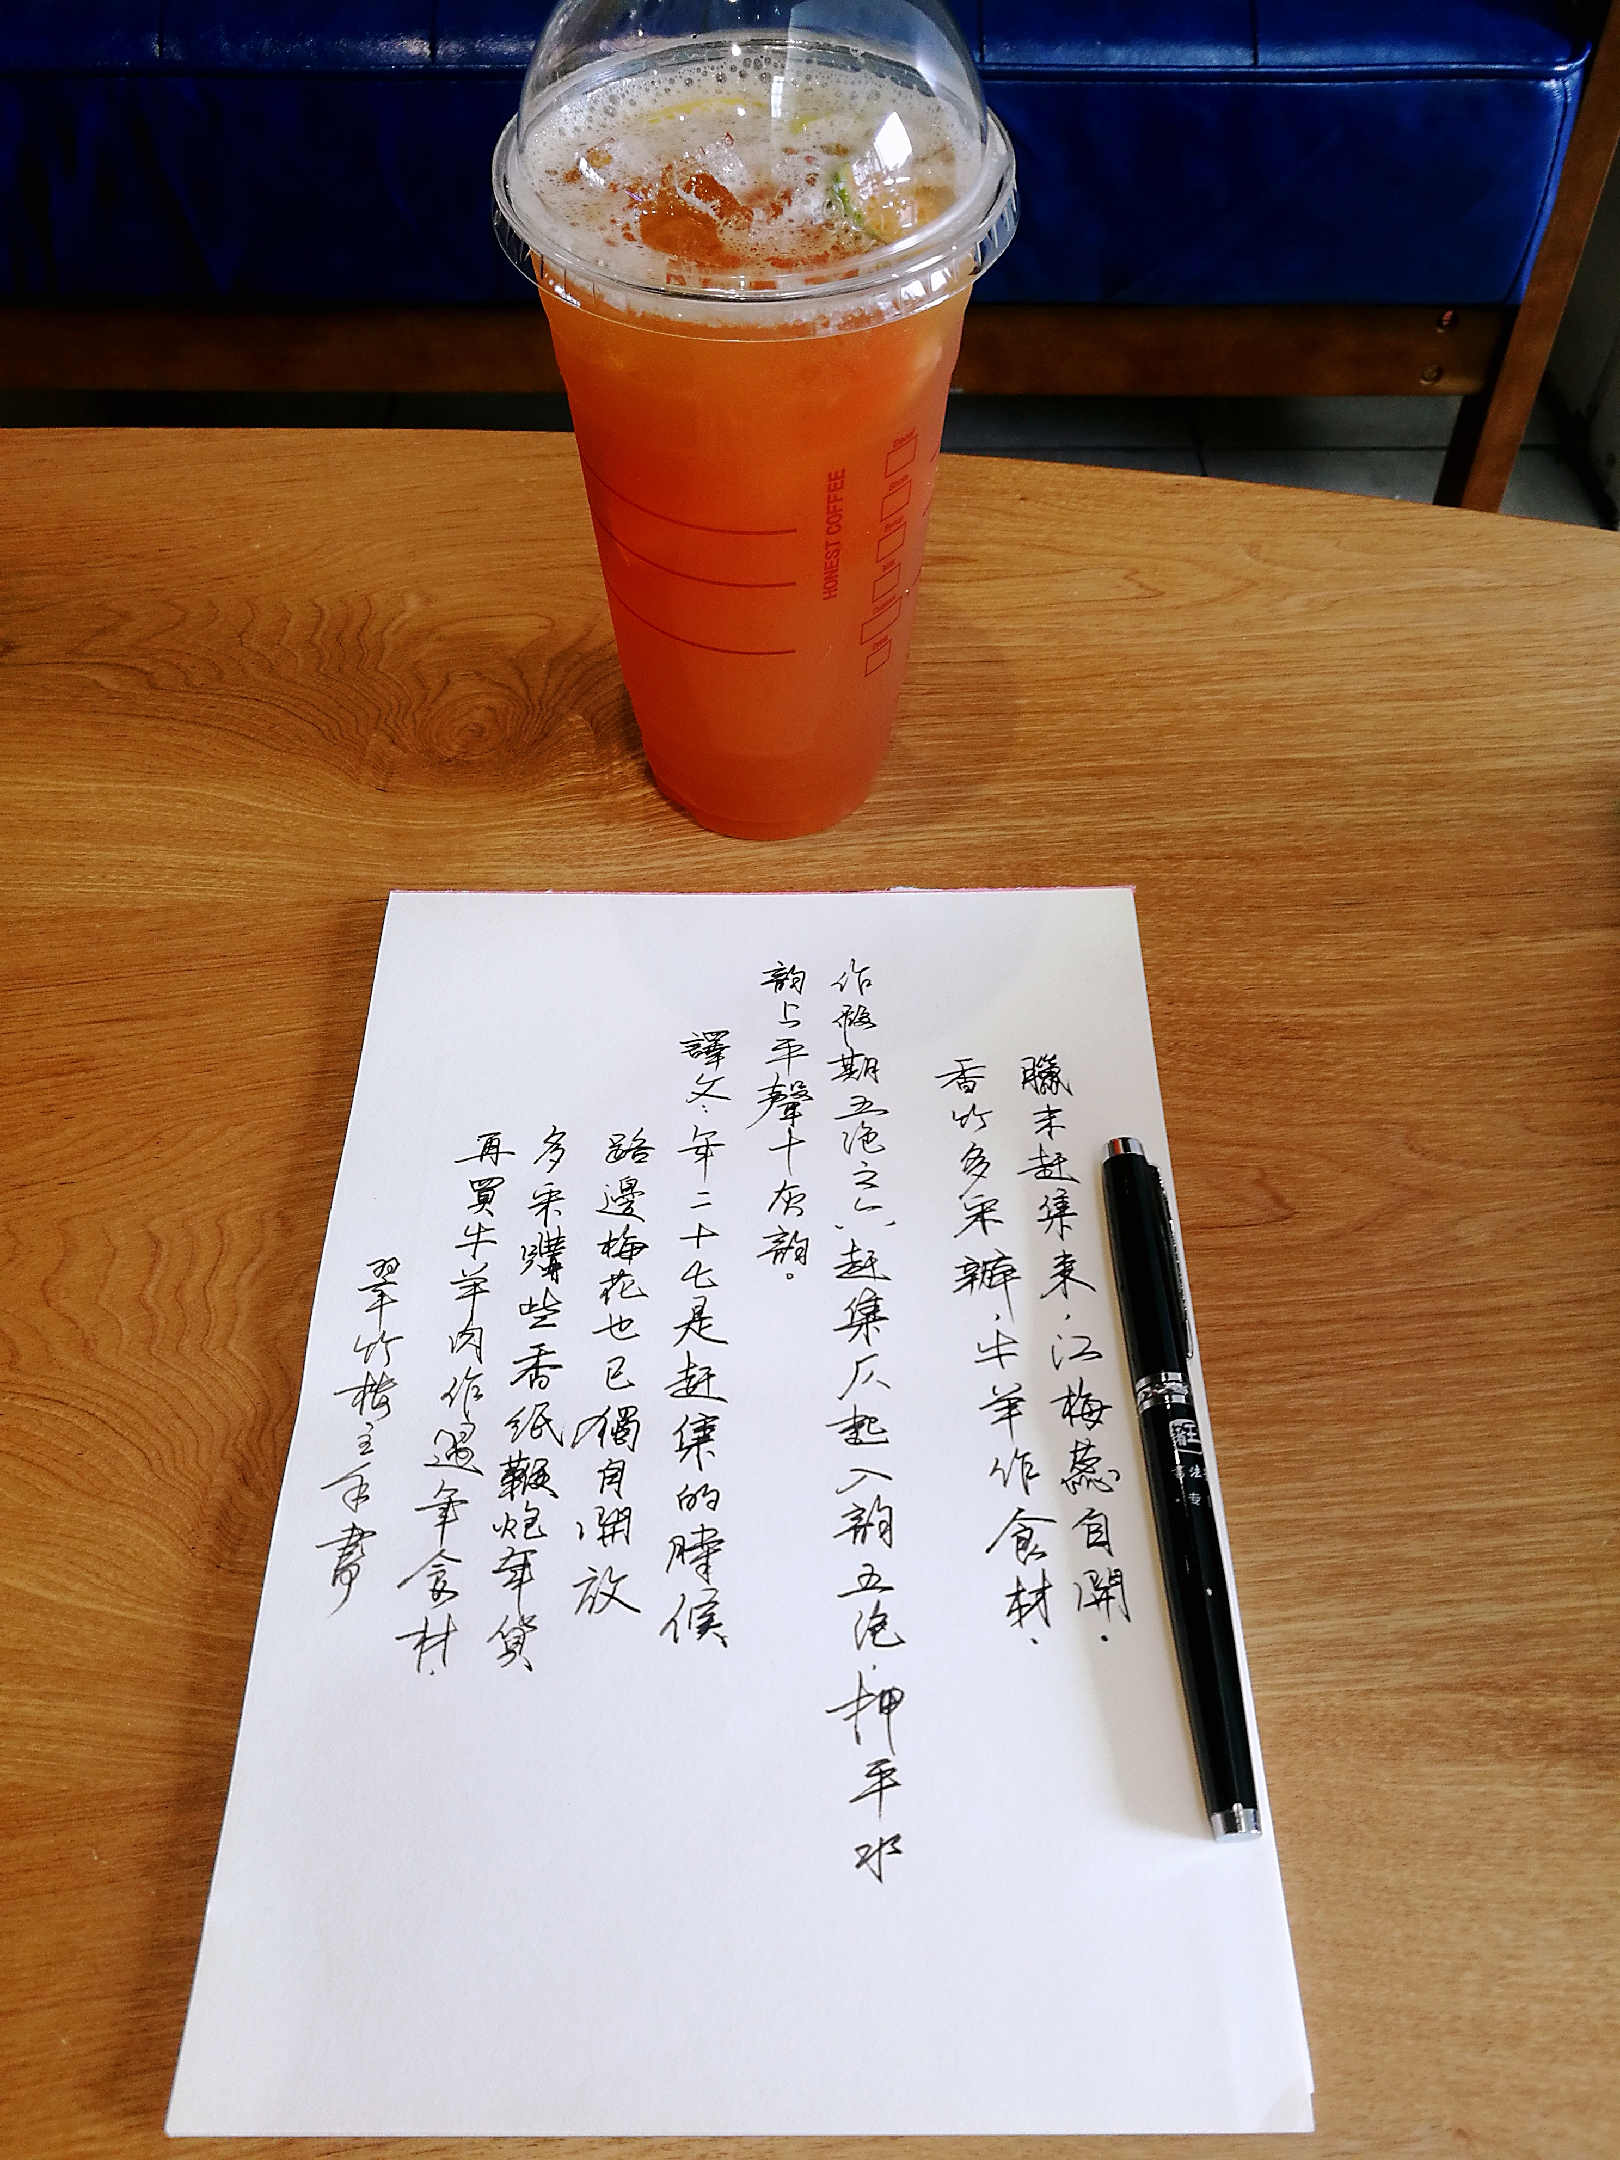 臘末赶集来，江梅蕊自開。
香竹多采辦，牛羊作食材。
作假期五绝之六，赶集仄起入韵五绝，押平水
韵上平聲十灰韵。
譯文：年二十七是赶集的時候
路邊梅花也已獨自開放
多采購些香纸鞭炮年貨
再買牛羊肉作過年食材
翠竹楼主手書
HONEST COFFEE
Decaf
Shots
Syrup
Milk
Custom